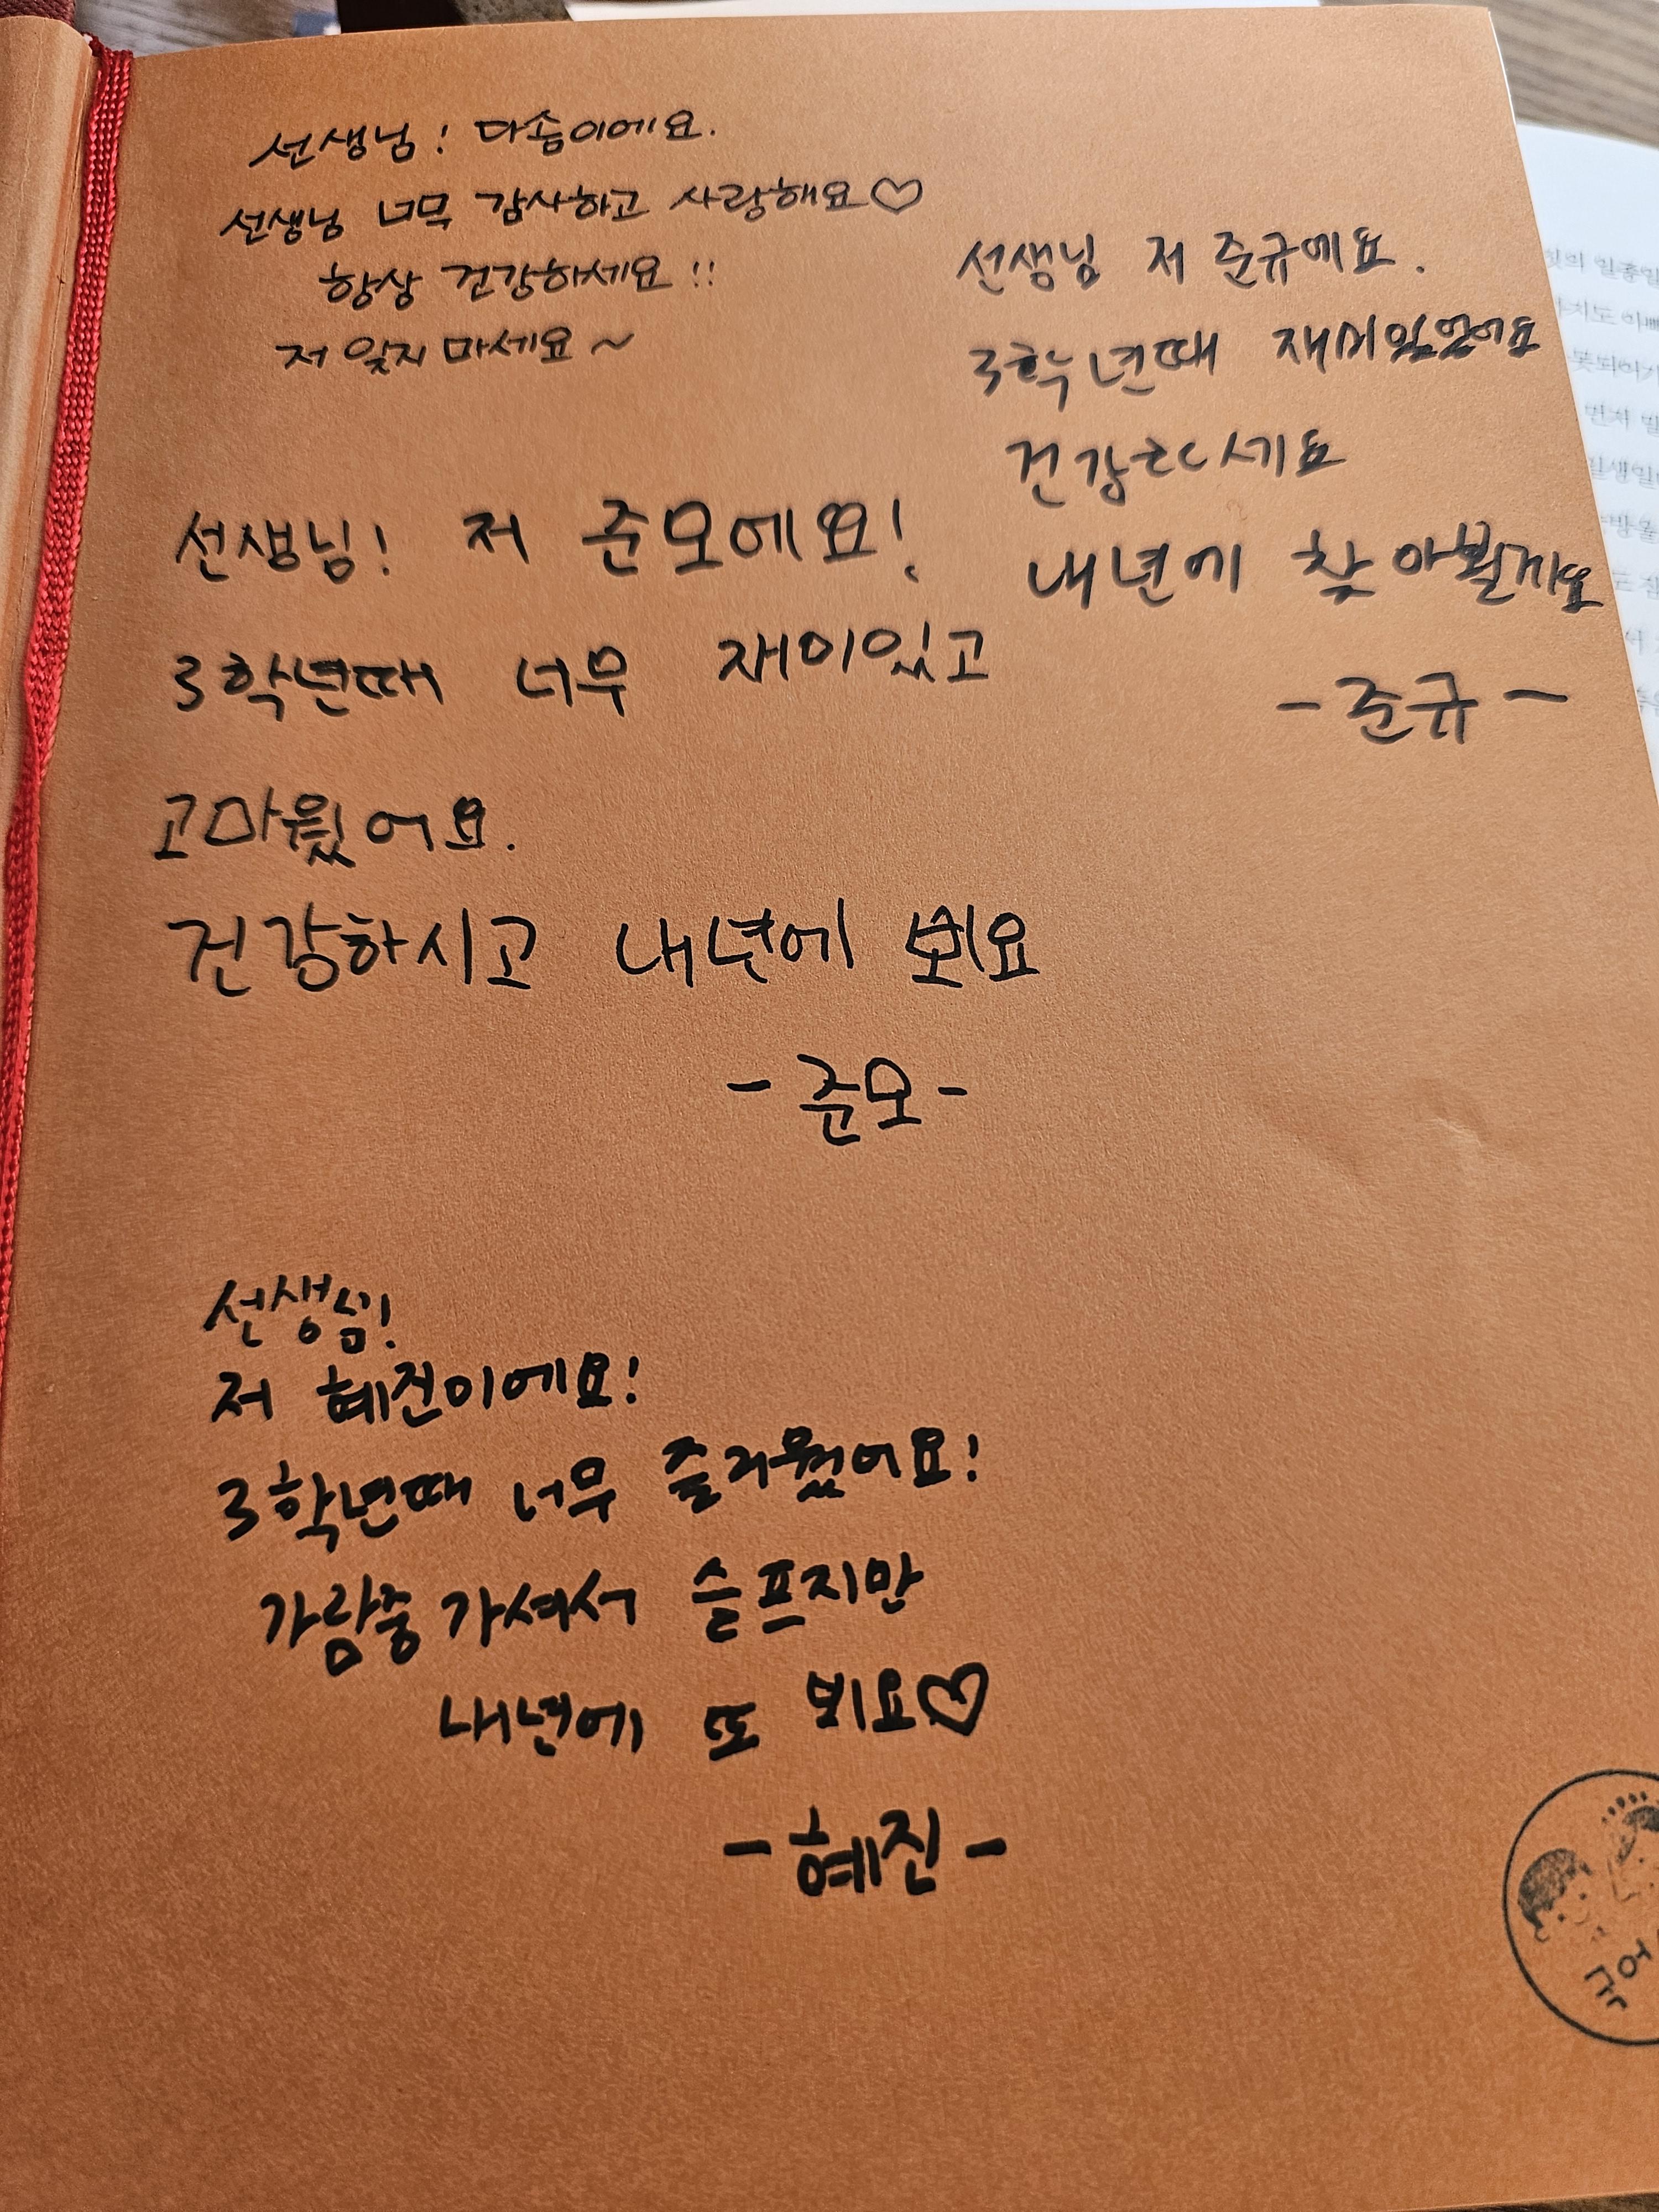 선생님! 다솜이에요.
선생님 너무 감사하고 사랑해요♡
항상 건강하세요!!
저 잊지 마세요~
선생님 저 준규에요.
3학년때 재미있었어요
건강하세요
내년에 찾아뵐게요
-준규-
선생님! 저 준모에요!
3학년때 너무 재미있고
고마웠어요.
건강하시고 내년에 뵈요
-준모-
선생님!
저 혜진이에요!
3학년때 너무 즐거웠어요!
가람중 가셔서 슬프지만
내년에 또 뵈요♡
-혜진-